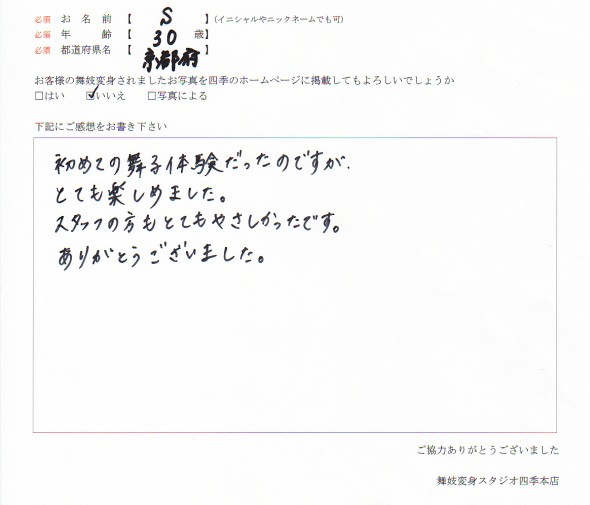 必須 お名前【 S 】(イニシャルやニックネームでも可)
必須 年齢【 30 歳】
必須 都道府県名【 京都府 】
お客様の舞妓変身されましたお写真を四季のホームページに掲載してもよろしいでしょうか
□はい ☑いいえ □写真による
下記にご感想をお書き下さい
初めての舞子体験だったのですが、
とても楽しめました。
スタッフの方もとてもやさしかったです。
ありがとうございました。
ご協力ありがとうございました
舞妓変身スタジオ四季本店